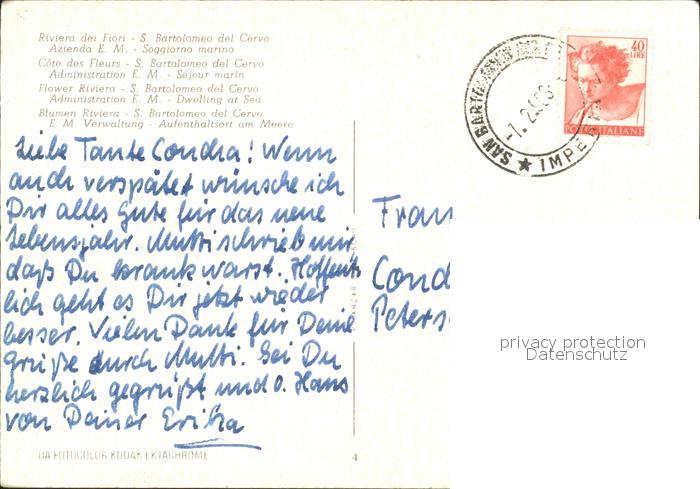 Riviera dei Fiori - S. Bartolomeo del Cervo
Azienda E. M. - Soggiorno marino
Côte des Fleurs - S. Bartolomeo del Cervo
Administration E. M. - Séjour marin
Flower Riviera - S. Bartolomeo del Cervo
Administration E. M. - Dwelling at Sea
Blumen Riviera - S. Bartolomeo del Cervo
E. M. Verwaltung - Aufenthaltsort am Meere
Liebe Tante Condra! Wenn
auch verspätet wünsche ich
Dir alles Gute für das neue
Lebensjahr. Mutti schrieb mir,
daß Du krank warst. Hoffent-
lich geht es Dir jetzt wieder
besser. Vielen Dank für Deine
Grüße durch Mutti. Sei Du
herzlich gegrüßt und O. Hans
von Deiner Erika
DA FOTOCOLOR KODAK EKTACHROME
4
40
LIRE
POSTE ITALIANE
SAN BARTOLOMEO
IMPERIA
Frau
Cond
Peters
privacy protection
Datenschutz